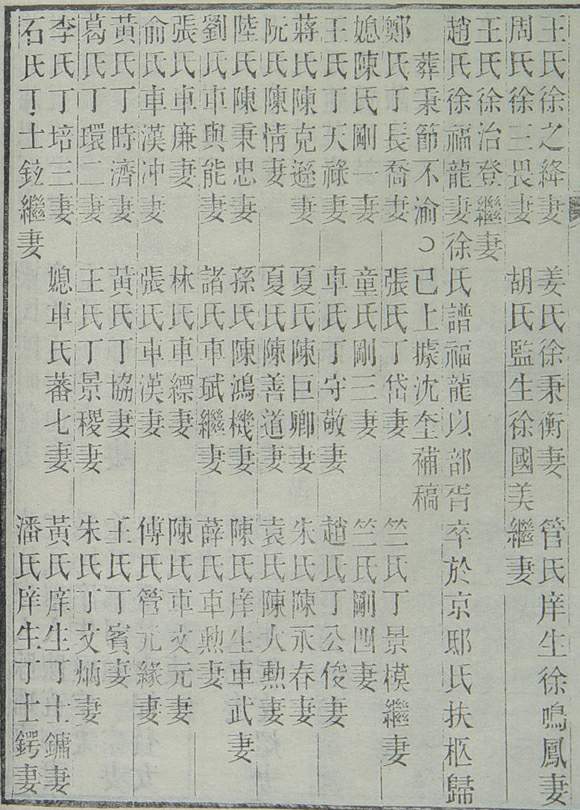 王氏徐之絳妻　姜氏徐秉衡妻　管氏庠生徐鳴鳳妻
周氏徐三畏妻　胡氏監生徐國美繼妻
王氏徐治登繼妻
趙氏徐福龍妻徐氏譜福龍以部胥卒於京邸氏扶柩歸
葬秉節不渝○已上據沈奎補稿
鄭氏丁長喬妻　張氏丁岱妻　竺氏丁景模繼妻
媳陳氏剛一妻　童氏剛三妻　竺氏剛四妻
王氏丁天祿妻　車氏丁守敬妻　趙氏丁公俊妻
蔣氏陳克遜妻　夏氏陳巨卿妻　朱氏陳永春妻
阮氏陳情妻　夏氏陳善道妻　袁氏陳大勲妻
陸氏陳秉忠妻　孫氏陳鴻機妻　陳氏庠生車武妻
劉氏車與能妻　諸氏車珷繼妻　薛氏車勲妻
張氏車廉妻　林氏車縹妻　陳氏車文元妻
俞氏車漢冲妻　張氏車漢妻　傅氏管元緣妻
黃氏丁時濟妻　黃氏丁協妻　王氏丁賓妻
葛氏丁環二妻　王氏丁景稷妻　朱氏丁文炳妻
李氏丁培三妻　媳車氏蕃七妻　黃氏庠生丁士鏞妻
石氏丁士鉉繼妻　潘氏庠生丁士鍔妻